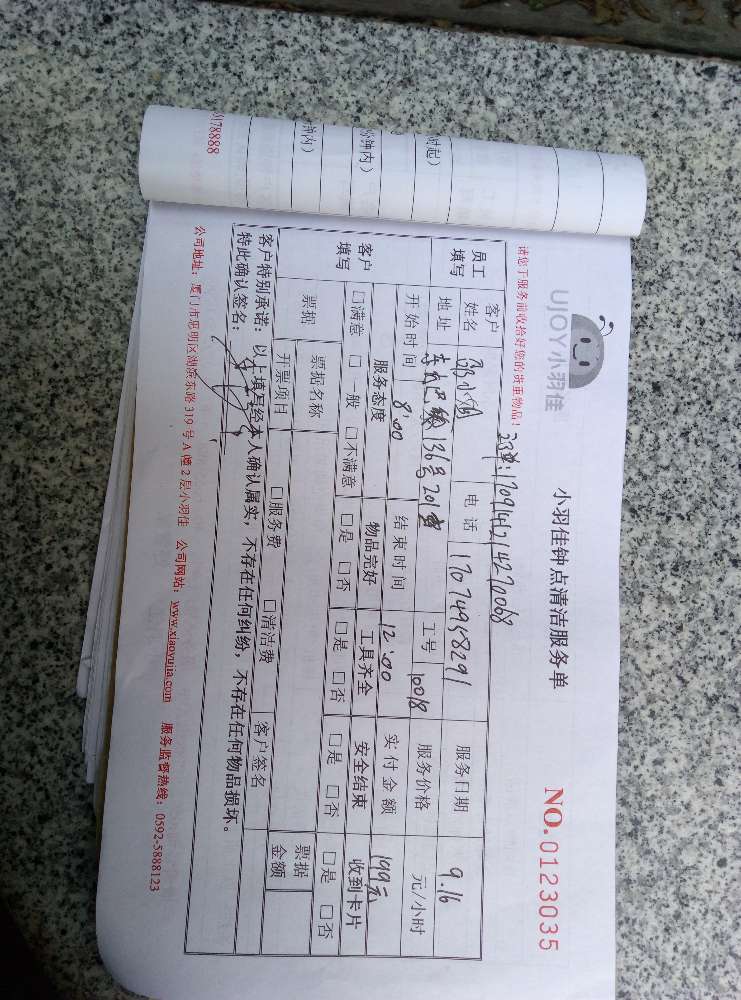 UJOY小羽佳
小羽佳钟点清洁服务单
NO.0123035
请您于服务前收拾好您的贵重物品!
170914214270068
员工填写
客户姓名
电话
17074958291
服务日期
9.16
地址
136号201
工号
10018
服务价格
元/小时
开始时间
8:00
结束时间
12:00
实付金额
199元
客户填写
服务态度
物品完好
工具齐全
安全结束
收到卡片
□满意 □一般 □不满意
□是 □否
□是 □否
□是 □否
□是 □否
票据
票据名称
票据金额
开票项目
□服务费 □清洁费
客户签名
客户特别承诺:以上填写经本人确认属实,不存在任何纠纷,不存在任何物品损坏。
特此确认签名:
公司地址:厦门市思明区湖滨东路319号A幢2层小羽佳 公司网站:www.xiaoyujia.com 服务监督热线:0592-5888123
时起)
分钟内)
钟内)
5178888